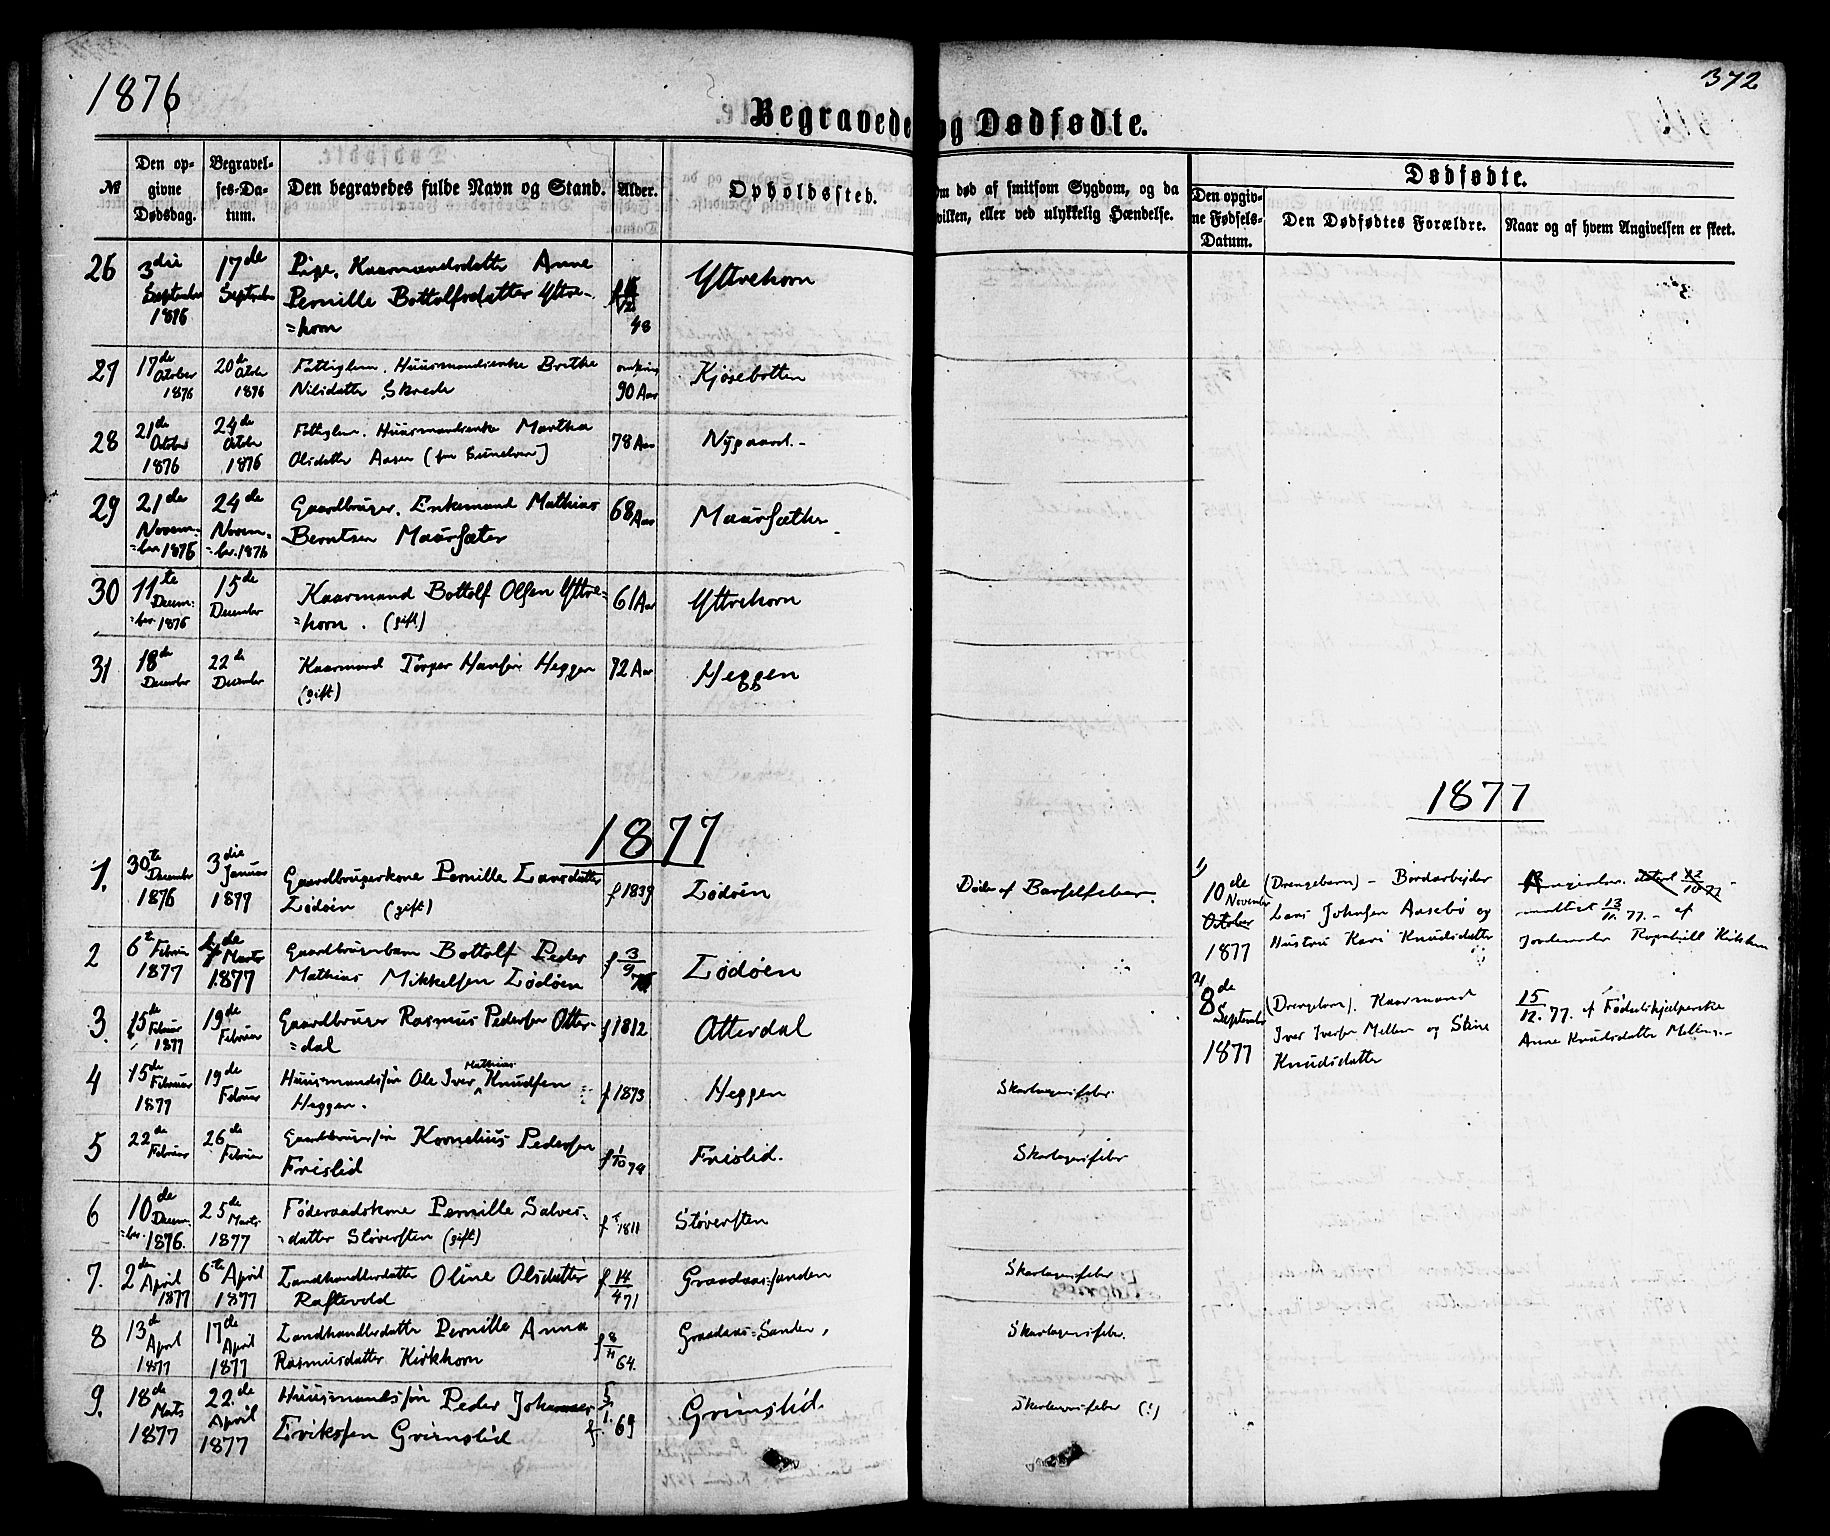 1876
372
Begravede og Dødfødte.
№
Den op-
givne
Dødsdag.
Begravel-
ses-Da-
tum.
Den begravedes fulde Navn og Stand.
Alder.
Opholdssted.
Om død af smitsom Sygdom, og da
hvilken, eller ved ulykkelig Hændelse.
Dødfødte.
Den opgiv-
ne Fødsels-
Datum.
Den Dødfødtes Forældre.
Naar og af hvem Angivelsen er skeet.
26
3die
September
1876
17de
September
Pige, Kaarmandsdatter Anne
Pernille Bottolfsdatter Yttre-
=horn
48
Yttrehorn
27
17de
October
1876
20de
Octobr
1876
Fattiglem. Huusmandsenke Brithe
Nilsdatter Skrede
omkring
90 Aar
Kjøsebotten
28
21de
October
1876
24de
Octobr
1876
Fattiglem. Huusmandsenke Martha
Olsdatter Aasen (fra Sunelven)
78 Aar
Nygaard.-
29
21de
Novem-
=ber 1876
24de
Novem-
=ber. 1876
Gaardbruger. Enkemand Mathias
Berntsen Maursæter
68 Aar
Maursæther
30
11te
Decem-
=ber 1876
15de
December
Kaarmand Bottolf Olsen Yttre=
=horn. (gift)
61 Aar
Yttrehorn
31
18de
December
22de
December
Kaarmand Torger Hansen Heggen
(gift)
72 Aar
Heggen
1877
1877
1.
30te
December
1876
3die
Januar
1877
Gaardbrugerkone Pernille Larsdatter
Lødøen (gift)
f 1839
Lødøen
Døde af Barselfeber.
2
6te Februar
1877
de
Marts
1877
Gaardbrugerbarn Bottolf Peder
Mathias Mikkelsen Lødøen
f 3/9 76
Lødøen
3.
15de
Februar
1877
19de
Februar
Gaardbruger Rasmus Pedersen Otter-
=dal
f 1812
Otterdal
4
15de
Februar
1877
19de
Februar
Huusmandssøn Ole Iver Mathias Knudsen
Heggen.
f 1873
Heggen
Skarlagensfeber.
5
22de
Februar
26de
Februar
Gaardbrugersøn Kornelius Pedersen
Frislid
f 1/10 74
Frislid.
Skarlagensfeber
6
10de
Decem-
=ber. 1876.
25de
Marts
1877
Føderaadskone Pernille Salves-
=datter Støversten (gift)
f 1811
Støversten
7.
2den
April
1877
6te April
1877
Landhandlerdatter Oline Olsdatter
Raftevold
f 14/4 71
Graadaas=sanden
Skarlagensfeber
8
13de
April
1877
17de
April
1877
Landhandlerdatter Pernille Anna
Rasmusdatter Kirkhorn
f 8/11 64.
Graadaas=Sanden,
Skarlagensfeber.
9.
18de
Marts
1877
22de
April
1877
Huusmandssøn Peder Johannes
Eriksen Grimslid
f. 5/1. 69
Grimslid.
Skarlagensfeber (?)
1)
10de
November
October
1877
(Drengebarn) - Bordarbejder
Lars Johnsen Aasebø og
Hustru Kari Knudsdatter
anmeldt 13/11. 77. - af
Jordemoder Ragnhild
2)
8de
September
1877
(Drengebarn). Kaarmand
Iver Iversen Melheim og Stine
Knudsdatter
15/12. 77. af Fødselshjælperske
Anne Knudsdatter Melling.-